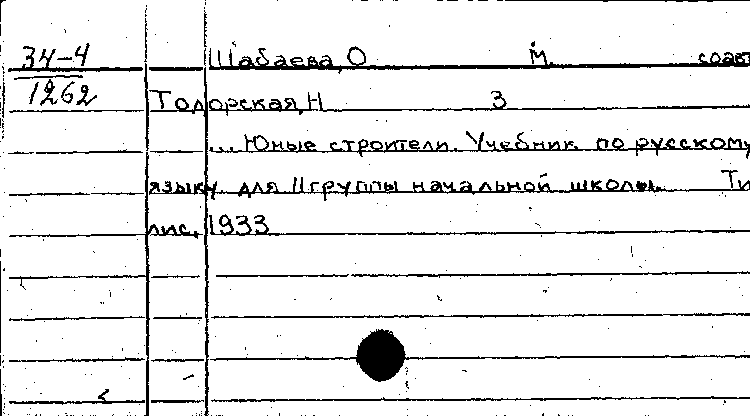 34-4 Шабаева, О М. соавт
1262 Тодорская, Н З
... Юные строители. Учебник по русскому
языку для II группы начальной школы. Ти
лис, 1933